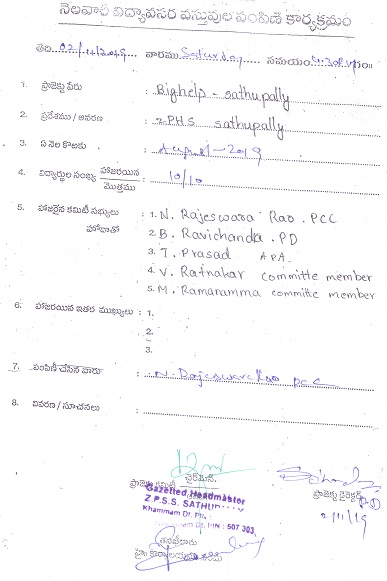 నెలవారీ విద్యావసర వస్తువుల పంపిణీ కార్యక్రమం
తేది: 02/11/2019 వారము Saturday సమయం 5:30 P.M గం॥
1. ప్రాజెక్టు పేరు : Bighelp - sathupally
2. ప్రదేశము / ఆవరణ : Z.P.H.S sathupally
3. ఏ నెల కొఱకు : August - 2019
4. విద్యార్థుల సంఖ్య హాజరయిన / మొత్తము : 10/10
5. హాజరైన కమిటీ సభ్యులు : 1. N. Rajeswara Rao. PCC
హోదాతో 2. B. Ravichandra. PD
3. T. Prasad APA.
4. V. Ratnakar committe member
5. M. Ramaramma committe member
6. హాజరయిన ఇతర ముఖ్యులు : 1.
2.
3.
7. పంపిణీ చేసిన వారు : N. Rajeswara Rao PCC
8. వివరణ / సూచనలు :
ప్రాజెక్టు కమిటీ ఛైర్మెన్
ప్రాజెక్టు డైరెక్టర్ PD
2/11/19
Gazetted Headmaster
Z.P.S.S. SATHUPALLY
Khammam Dt. PIN : 507 303